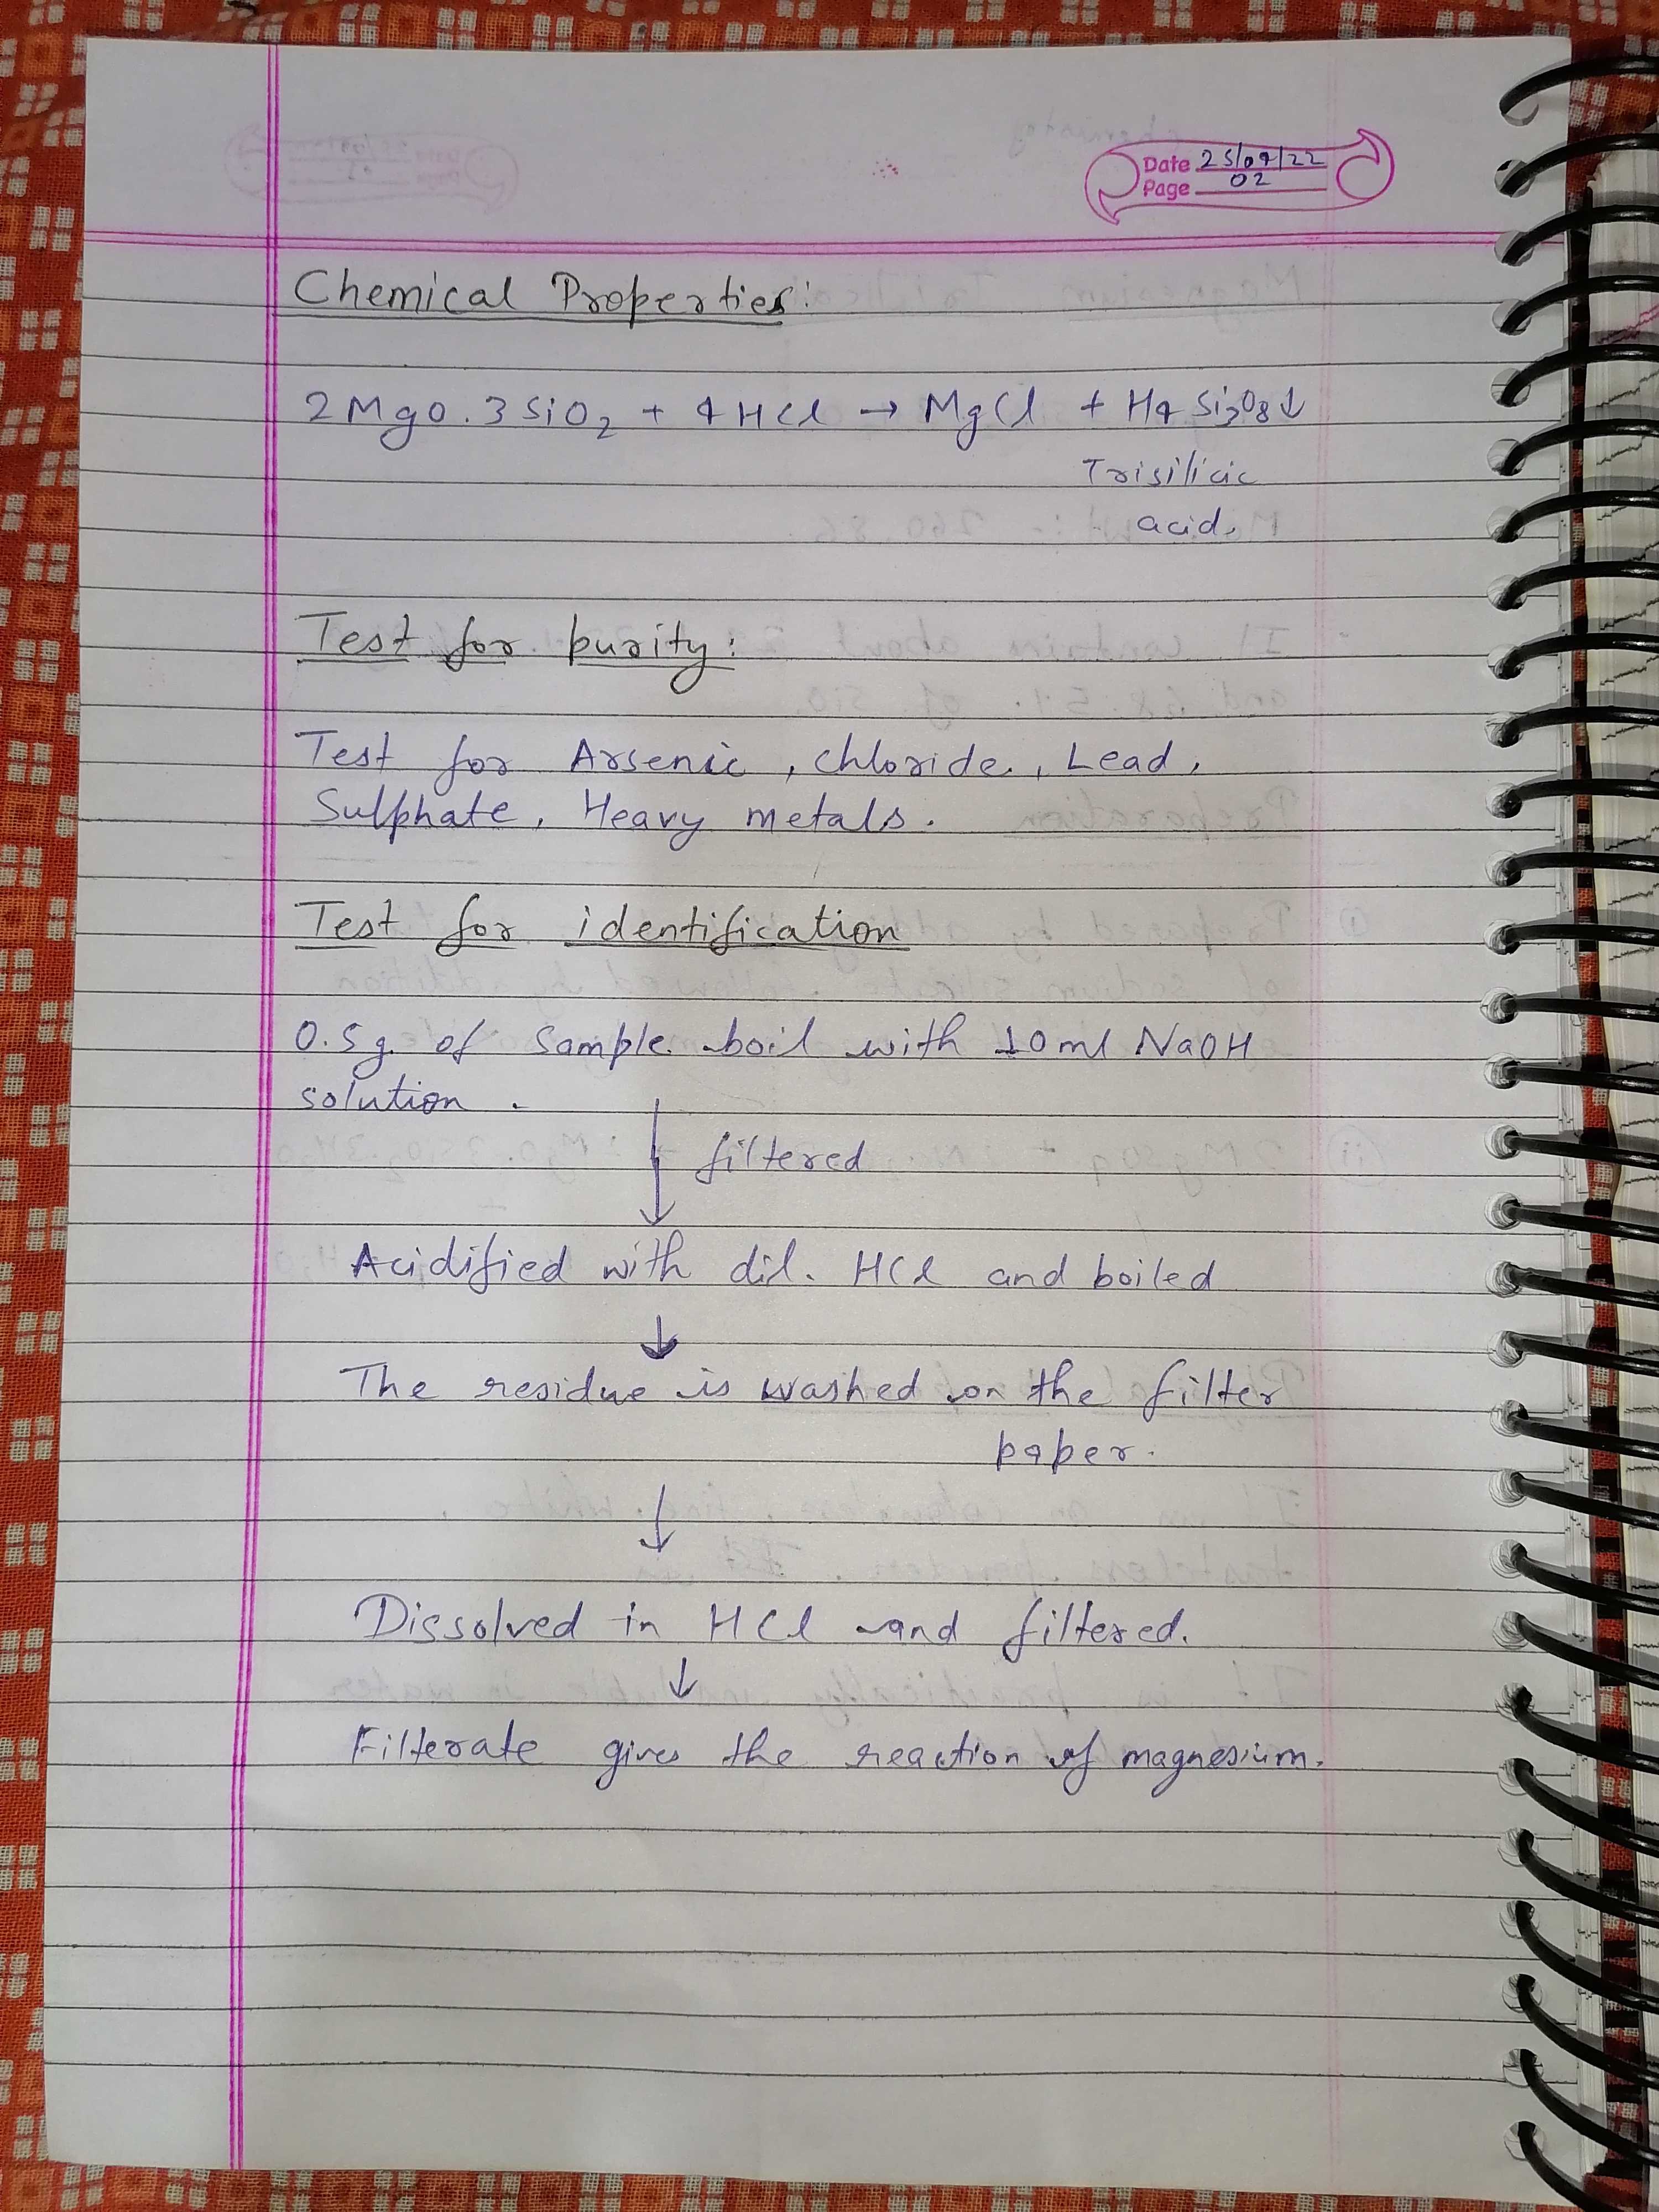 Date 25/04/22
Page 02
Chemical Properties:
2MgO.3SiO2 + 4HCl → MgCl + H4Si3O8↓
Trisilicic
acid.
Test for purity:
Test for Arsenic, chloride, Lead,
Sulphate, Heavy metals.
Test for identification
0.5g. of Sample boil with 10ml NaOH
solution.
↓ filtered
Acidified with dil. HCl and boiled
↓
The residue is washed on the filter
paper.
↓
Dissolved in HCl and filtered.
↓
Filterate gives the reaction of magnesium.